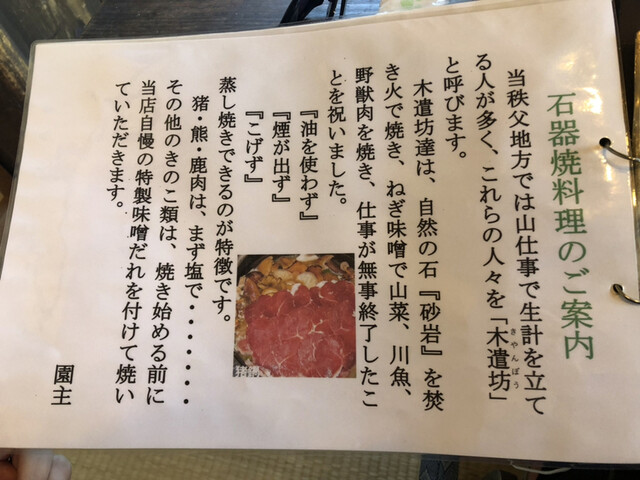 石器焼料理のご案内
当秩父地方では山仕事で生計を立て
る人が多く、これらの人々を「木遣坊」
きやんぼう
と呼びます。
木遣坊達は、自然の石『砂岩』を焚
き火で焼き、ねぎ味噌で山菜、川魚、
野獣肉を焼き、仕事が無事終了したこ
とを祝いました。
『油を使わず』
『煙が出ず』
『こげず』
蒸し焼きできるのが特徴です。
猪・熊・鹿肉は、まず塩で・・・・・・・
その他のきのこ類は、焼き始める前に
当店自慢の特製味噌だれを付けて焼い
ていただきます。
園主
猪鍋